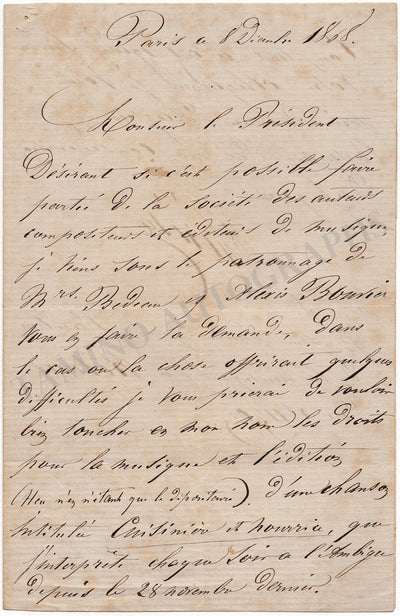 Paris le 8 Décembre 1868.
Monsieur le Président
Désirant si c'est possible faire
partie de la société des auteurs
compositeurs et éditeurs de musique
je viens sous le patronnage de
Mrs. Bedeau et Alexis Bouvier
vous en faire la demande, dans
le cas ou la chose offrirait quelques
difficultés je vous prierai de vouloir
bien toucher en mon nom les droits
pour la musique et l'édition
(Heu n'en n'étant que le dépositaire) d'une chanson
intitulée Cuisinière et nourrice, que
j'interprète chaque soir a l'Ambigu
depuis le 28 novembre dernier.
TAMINO AUTOGRAPHS